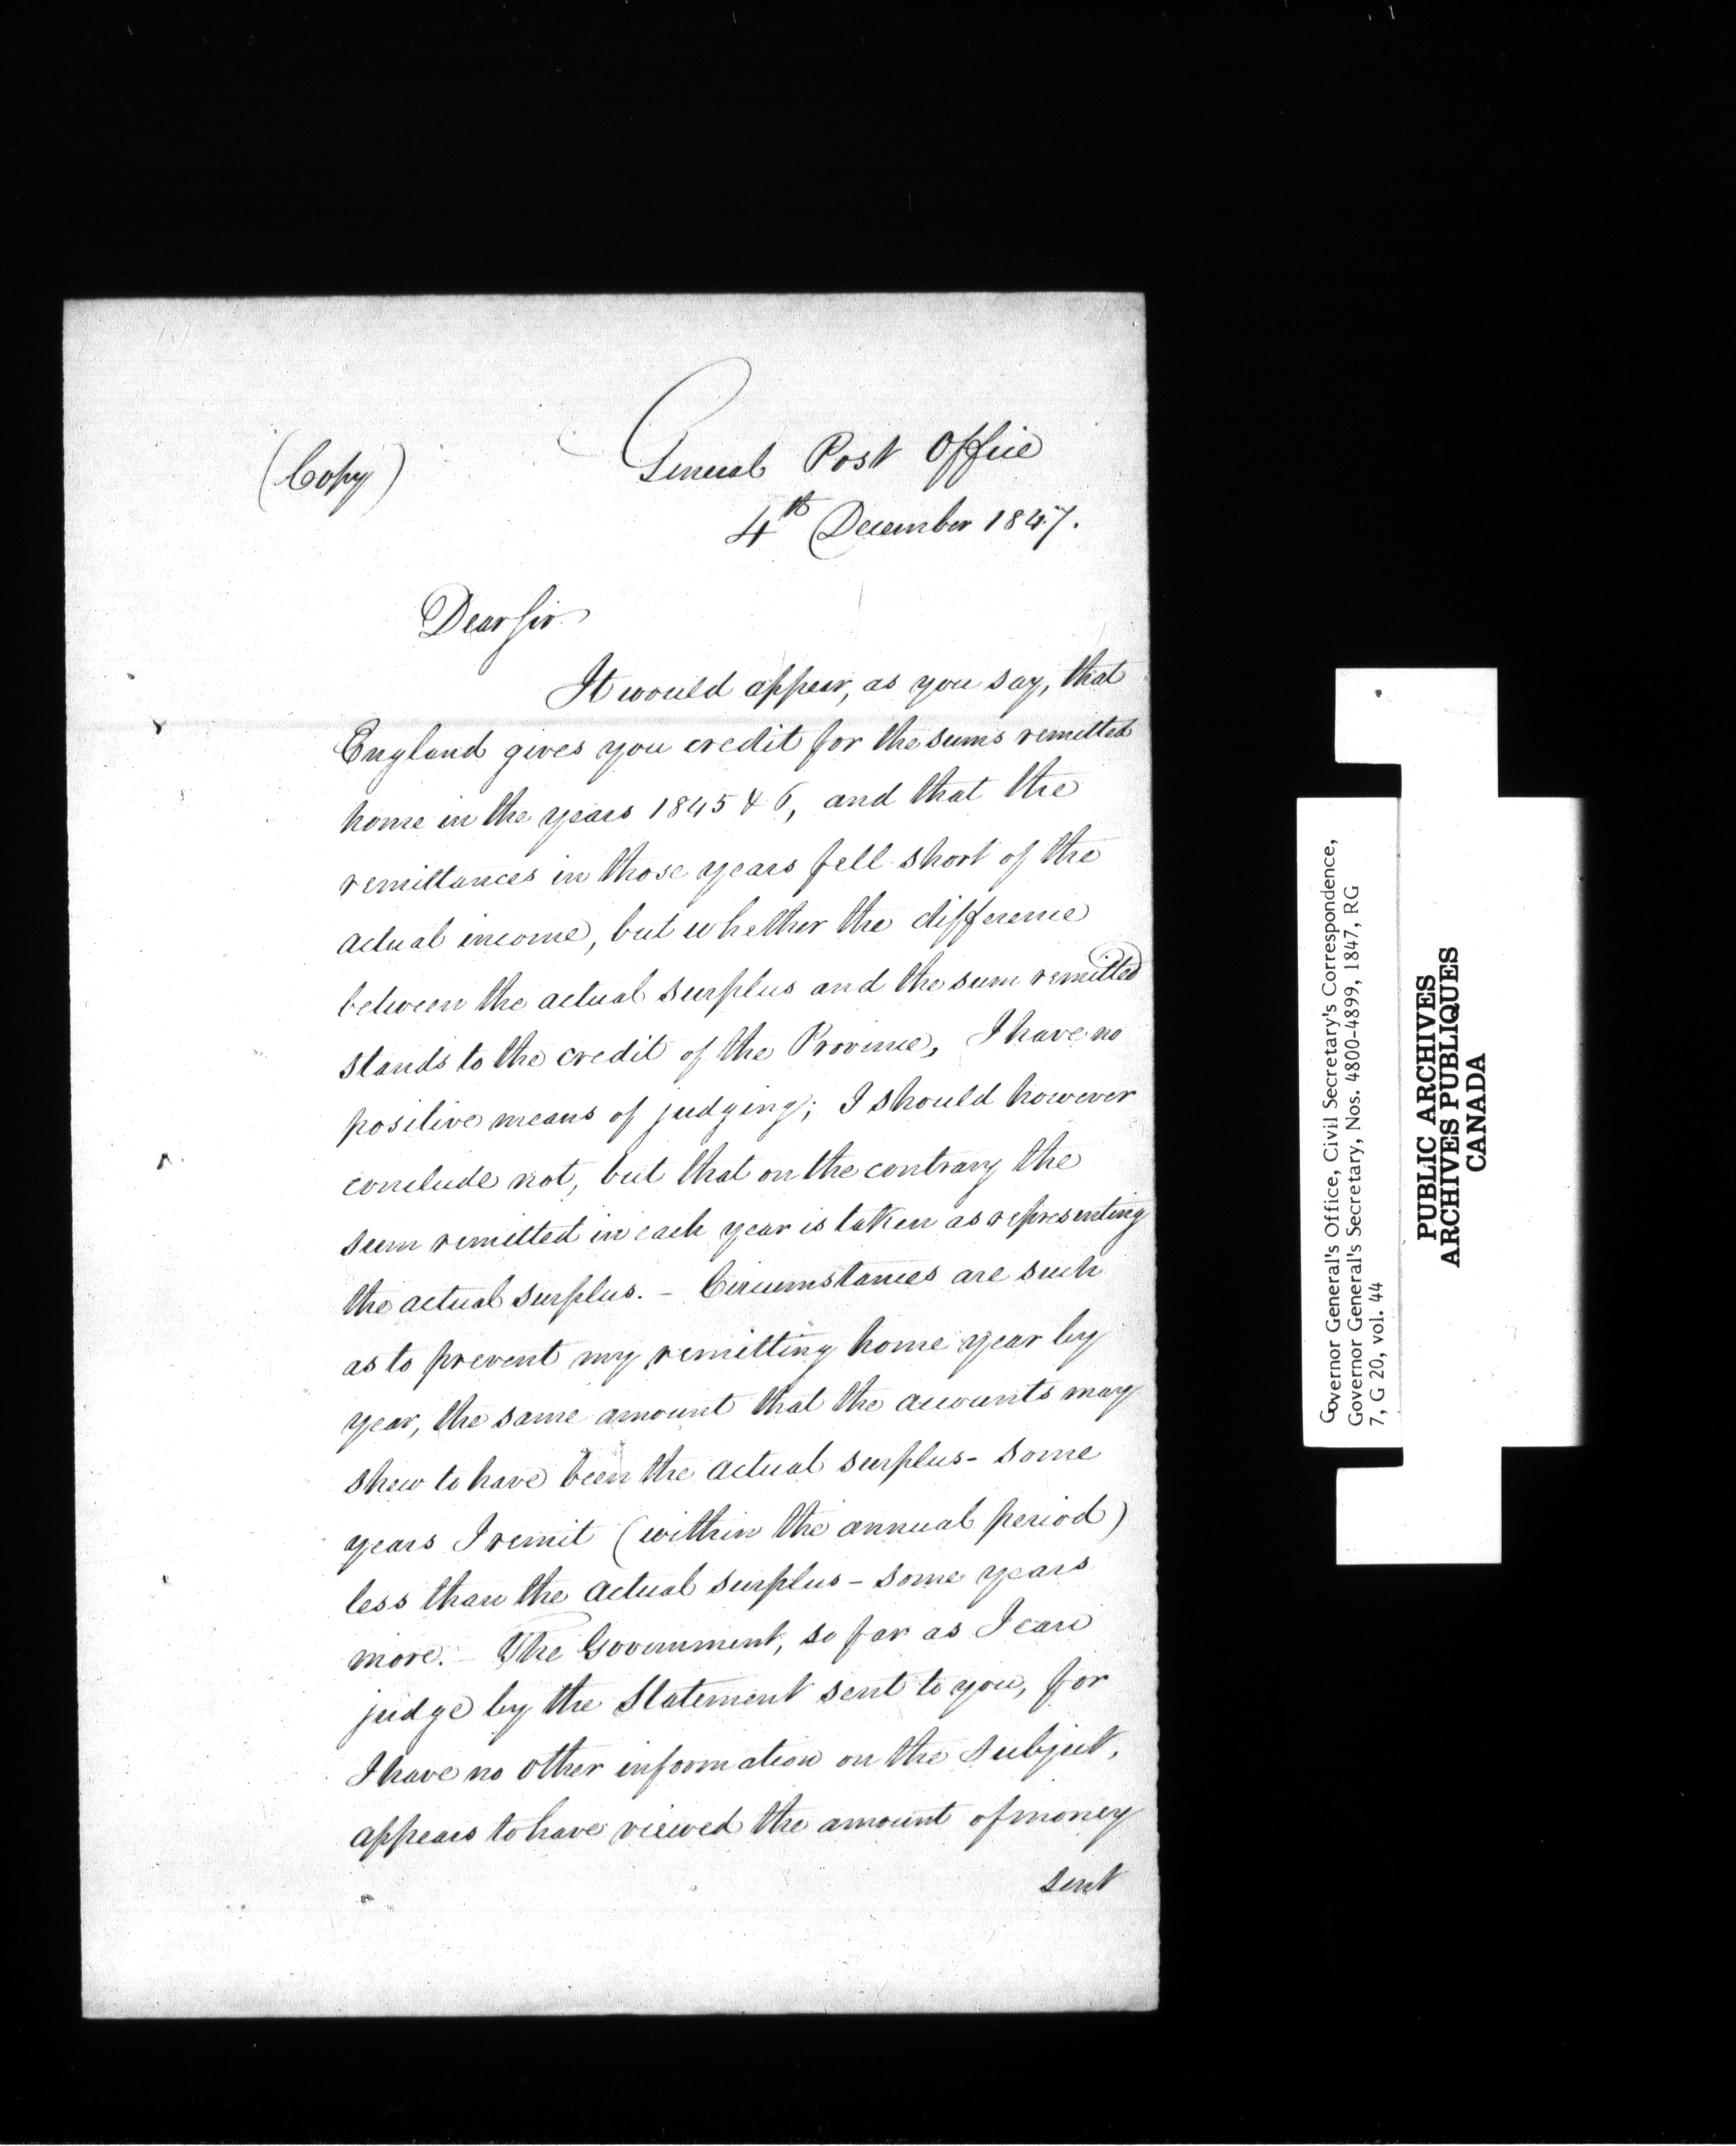 (Copy)
General Post Office
4th December 1847.
Dear Sir
It would appear, as you say, that
England gives you credit for the sums remitted
home in the years 1845 & 6, and that the
remittances in those years fell short of the
actual income, but whether the difference
between the actual surplus and the sum remitted
stands to the credit of the Province, I have no
positive means of judging; I should however
conclude not, but that on the contrary the
sum remitted in each year is taken as representing
the actual surplus. – Circumstances are such
as to prevent my remitting home year by
year, the same amount that the accounts may
shew to have been the actual surplus – some
years I remit (within the annual period)
less than the actual surplus – some years
more. – The Government, so far as I can
judge by the Statement sent to you, for
I have no other information on the subject,
appears to have viewed the amount of money
sent
Governor General's Office, Civil Secretary's Correspondence,
Governor General's Secretary, Nos. 4800-4899, 1847, RG
7, G 20, vol. 44
PUBLIC ARCHIVES
ARCHIVES PUBLIQUES
CANADA